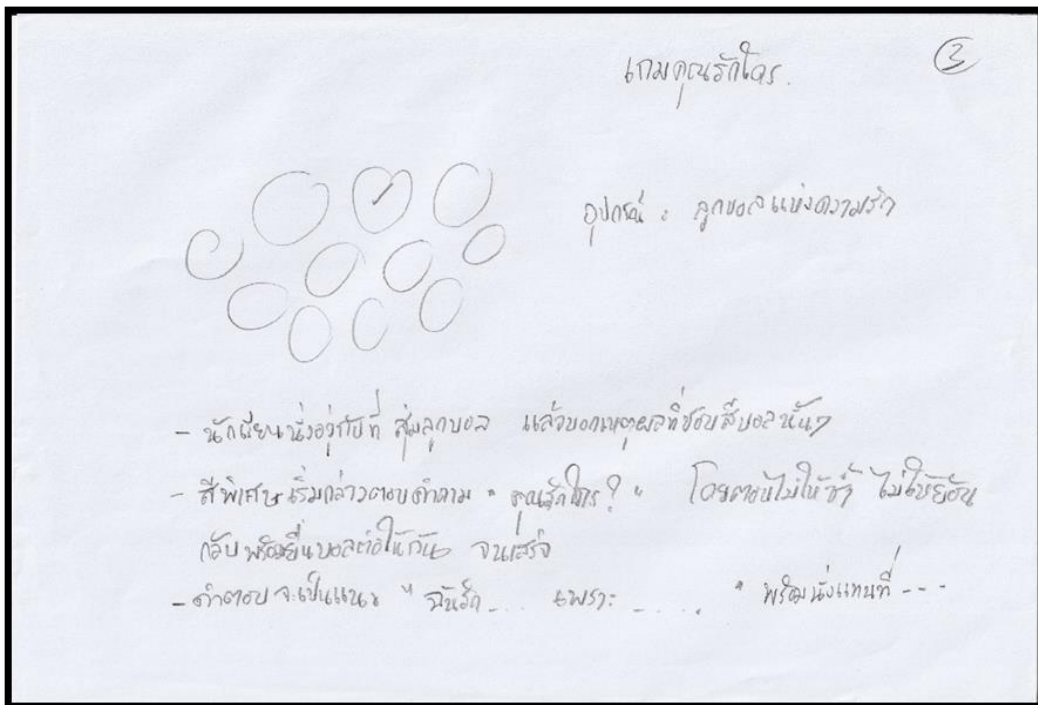 ③
เกมคุณรักใคร.
อุปกรณ์ : ลูกบอลแห่งความรัก
- นักเรียนนั่งอยู่กับที่ สุ่มลูกบอล แล้วบอกเหตุผลที่ชอบสีบอลนั้นๆ
- สีพิเศษ เริ่มกล่าวตอบคำถาม " คุณรักใคร? " โดยตอบไม่ให้ซ้ำ ไม่ให้ย้อน
กลับ พร้อมยื่นบอลต่อให้กัน จนเสร็จ
- คำตอบจะเป็นแนว " ฉันรัก .... เพราะ ..... " พร้อมนั่งแทนที่ ---